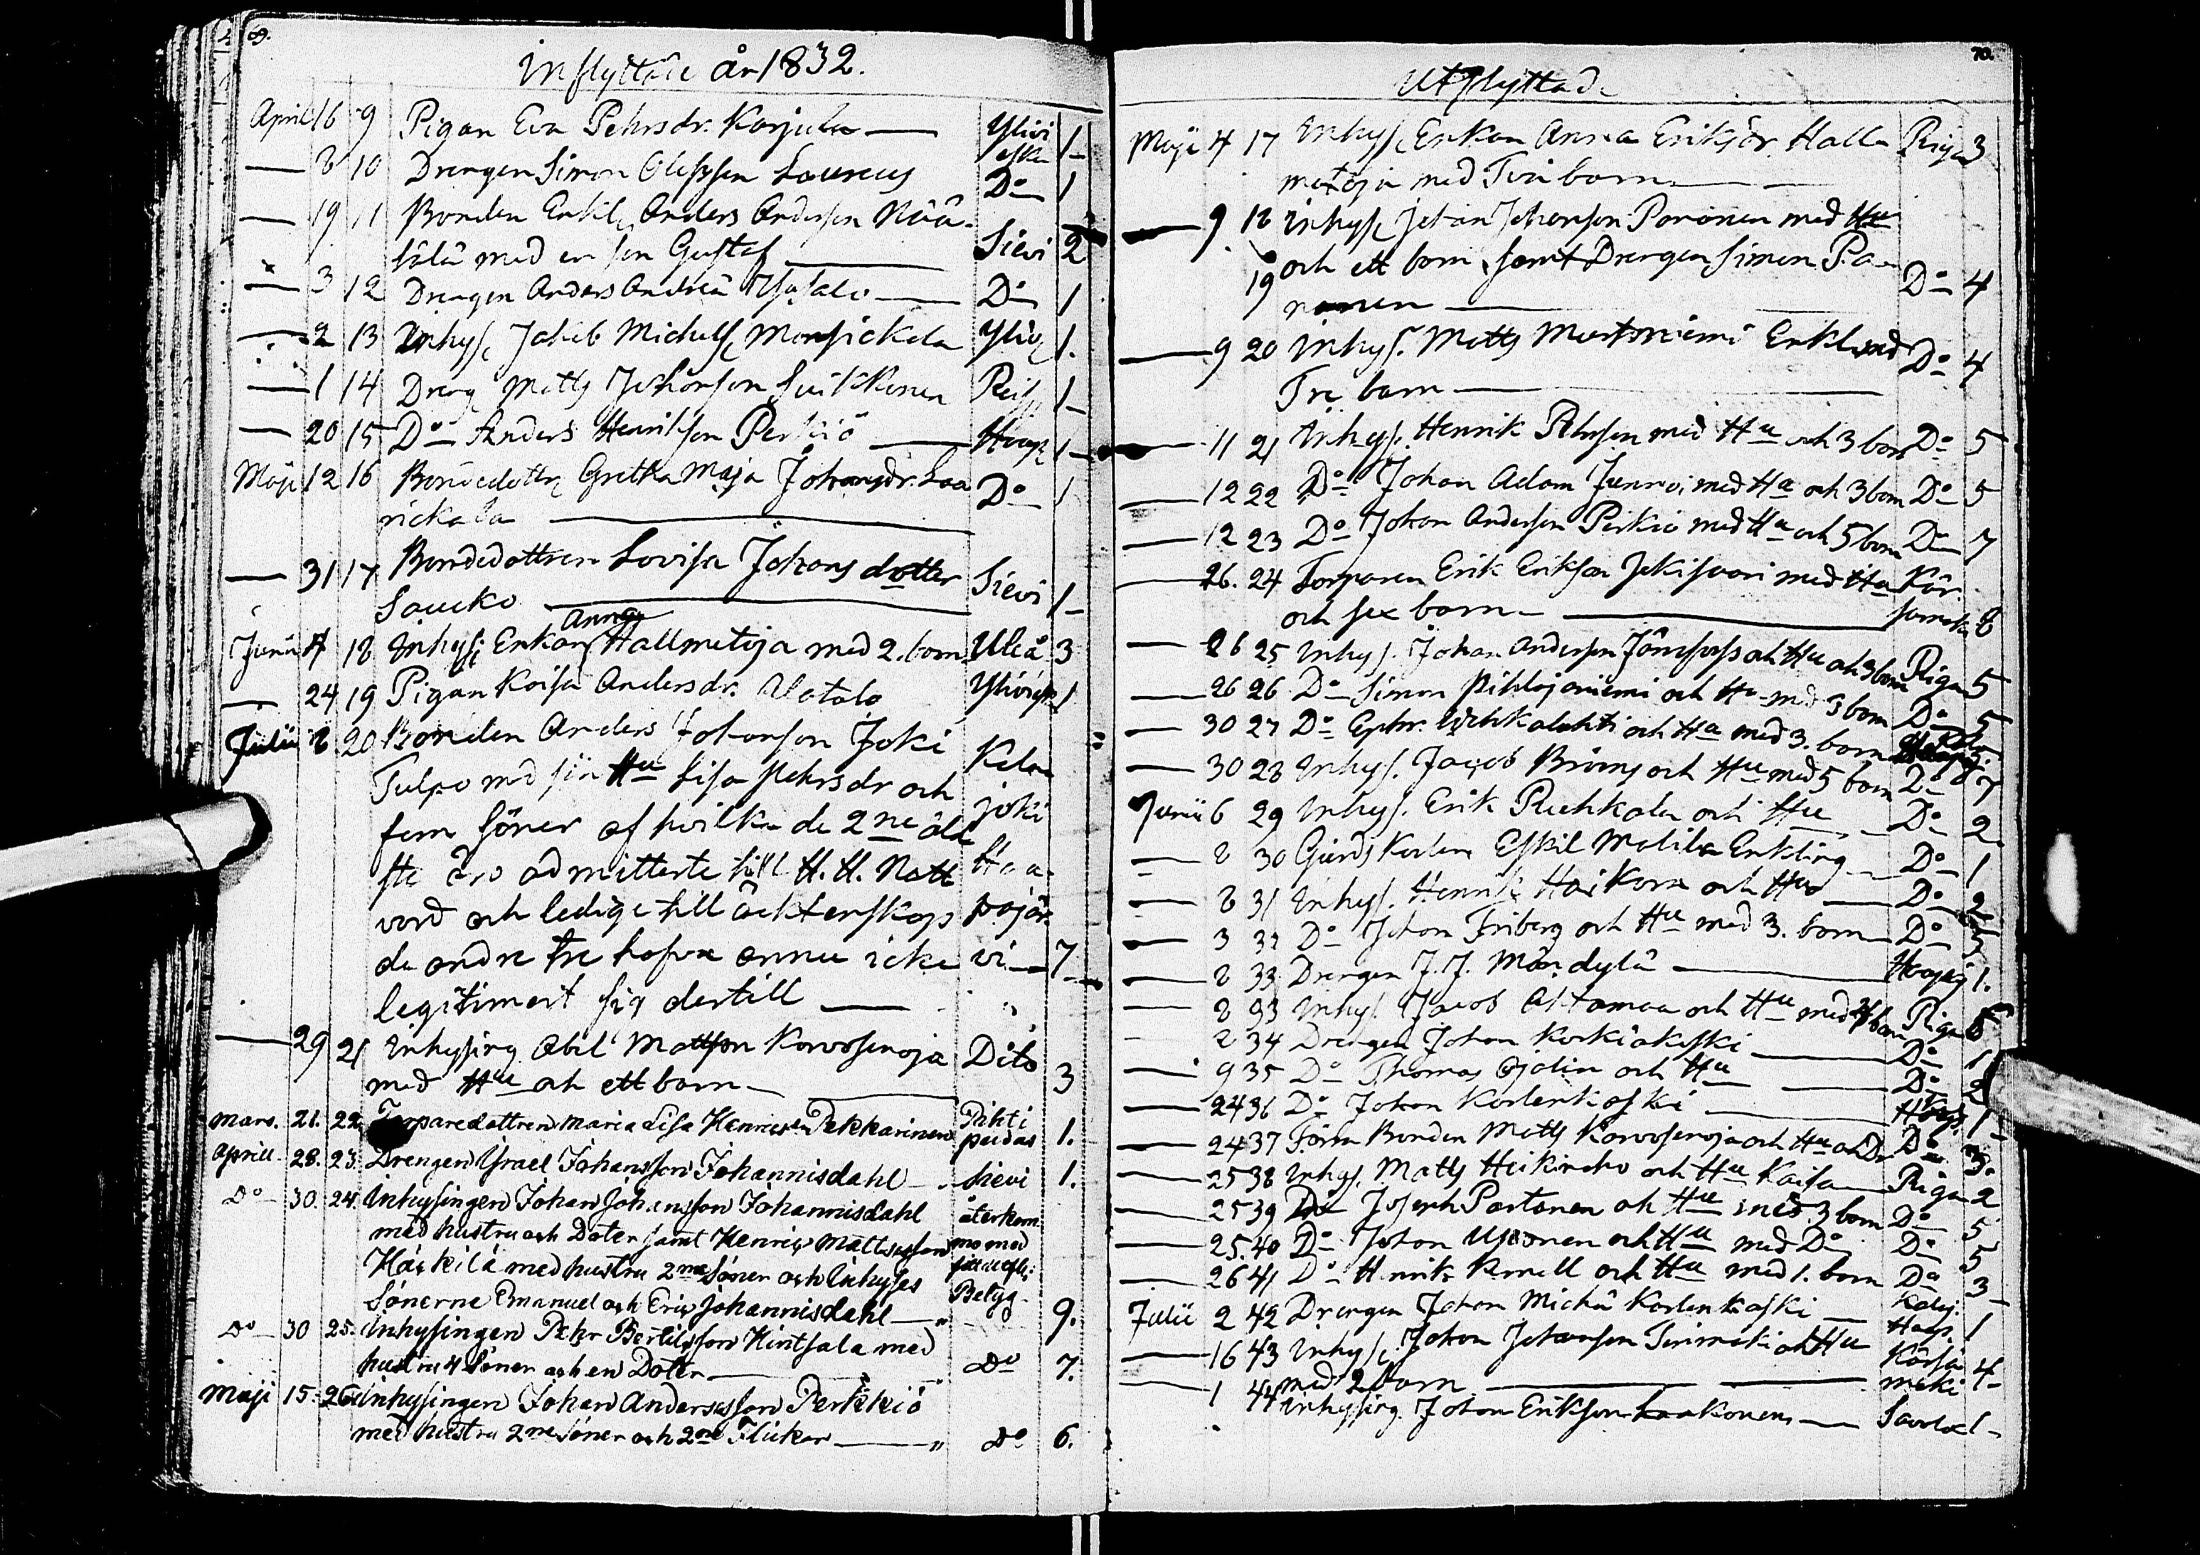 69.
Inflyttade år 1832.
April 16 9 Pigan Eva Pehrsdr. Karjula — Ylivi 1
eska
— 8 10 Drengen Simon Olofsson Laureus Do 1
— 19 11 Bonden Enkl. Anders Andersson
med en son Gustaf — Sievi 2
— 3 12 Drengen Anders Andreæ — Do 1
— 2 13 Inhys. Jakob Michelss. Ylivi 1.
— 1 14 Dreng Matts Johansson Reis. 1
— 20 15 Do Anders Henriksson Perkiö — Haap. 1
Maji 12 16 Bondedottr. Gretha Maja Johansdr. Laa Do 1
rickala —
— 31 17 Bondedottren Lovisa Johans dotter Sievi 1
Saucko —
Anna
Junii 4 18 Inhys. Enkan Hallmetoja med 2. barn Uleå 3
— 24 19 Pigan Kaisa Andersdr. Ylivies. 1
Julii 8 20 Bonden Anders Johansson Joki Kala
Tulpo med sin Hu Lisa Pehrsdr och joki
fem söner af hvilka de 2ne äld
ste äro admitterte till H. H. Natt Haa-
vard och ledige till äcktenskap pajär-
de andre tre hafva ännu icke vi — 7
legitimert sig dertill —
— 29 21 Inhysing Abel Mattson Korvosenoja Dito 3
med Hu och ett barn —
Mars. 21. 22. Torparedottren Maria Lisa Henricsdr Pekkarinen Pihti 1.
pudas
Aprill. 28. 23. Drengen Israel Johansson Johannisdahl — Sievi 1.
Do — 30. 24. Inhysingen Johan Johansson Johannisdahl återkom
med hustru och Doter samt Henric Mattsson mo med
Härkilä med hustru 2ne Söner och Inhyses
Sönerne Emanuel och Eric Johannisdahl — Betyg. 9.
Do — 30 25. Inhysingen Pehr Bertilsson Hintsala med
hustru 4 Söner och en Doter — Do 7.
Maji 15. 26. Inhysingen Johan Andersson Perkkiö
med hustru 2ne Söner och 2ne Flickor — " Do 6.
70.
Utflyttade
Maji 4 17 Inhys. Enkan Anna Eriksdr. Halla Riga 3
metoja med Två barn —
— 9 18 Inhys. Johan Johansson Paronen med Hu
19 och ett barn, samt Drengen Simon Pa- Do 4
ronen —
— 9 20 Inhys. Matts Enkl. med Do 4
Tre barn —
— 11 21 Inhys. Henrik Pehrson med Hu och 3 barn Do 5
— 12 22 Do Johan Adam med Hu och 3 barn Do 5
— 12 23 Do Johan Anderson Perkiö med Hu och 5 barn Do 7
— 26. 24 Torparen Erik Eriksson Jokisaari med Hu Kär
och sex barn — sämäki 8
— 26 25 Inhys. Johan Anderson och Hu och 3 barn Riga 5
— 26 26 Do Simon Pihlajaniemi och Hu med 3 barn Do 5
— 30 27 Do Ephr. och Hu med 3. barn
— 30 28 Inhys. Jacob och Hu med 5 barn Do 7
Junii 6 29 Inhys. Erik Puhkala och Hu — Do 2
— 8 30 Eskil Matila Enkling — Do 1
— 8 31 Inhys. Henrik Haikora och Hu — Do 2
— 3 32 Do Johan Friberg och Hu med 3. barn — Do 5
— 8 33 Drengen J. J. Mändylä — Haapaj. 1.
— 8 33 Inhys. Jacob och Hu med barn Riga
— 8 34 Drengen Johan Korkiakoski — Do 1
— 9 35 Do Thomas Ojalin och Hu — Do 2
— 24 36 Do Johan Kortenkoski — Haap. 1
— 24 37 Förra Bonden Matts Korvosenoja och Hu och Dr Do 3.
— 25 38 Inhys. Matts och Hu Kaisa — Riga 2
— 25 39 Do Joseph Partanen och Hu med 3 barn Do 5
— 25. 40 Do Johan och Hu med Do Do 5
— 26 41 Do Henrik Knell och Hu med 1. barn Do 3
Julii 2 42 Drengen Johan Kortenkoski — Kalaj. 1
Haap.
— 16 43 Inhys. Johan Johansson och Hu Kärsä 4
med 2 barn — mäki
— 1 44 Inhysing. Johan Eriksson — Savolax 1